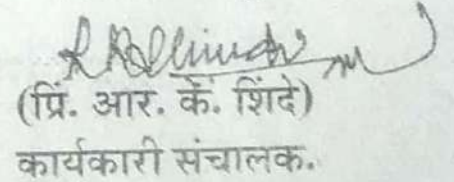 (प्रिं. आर. कें. शिंदे)
कार्यकारी संचालक.